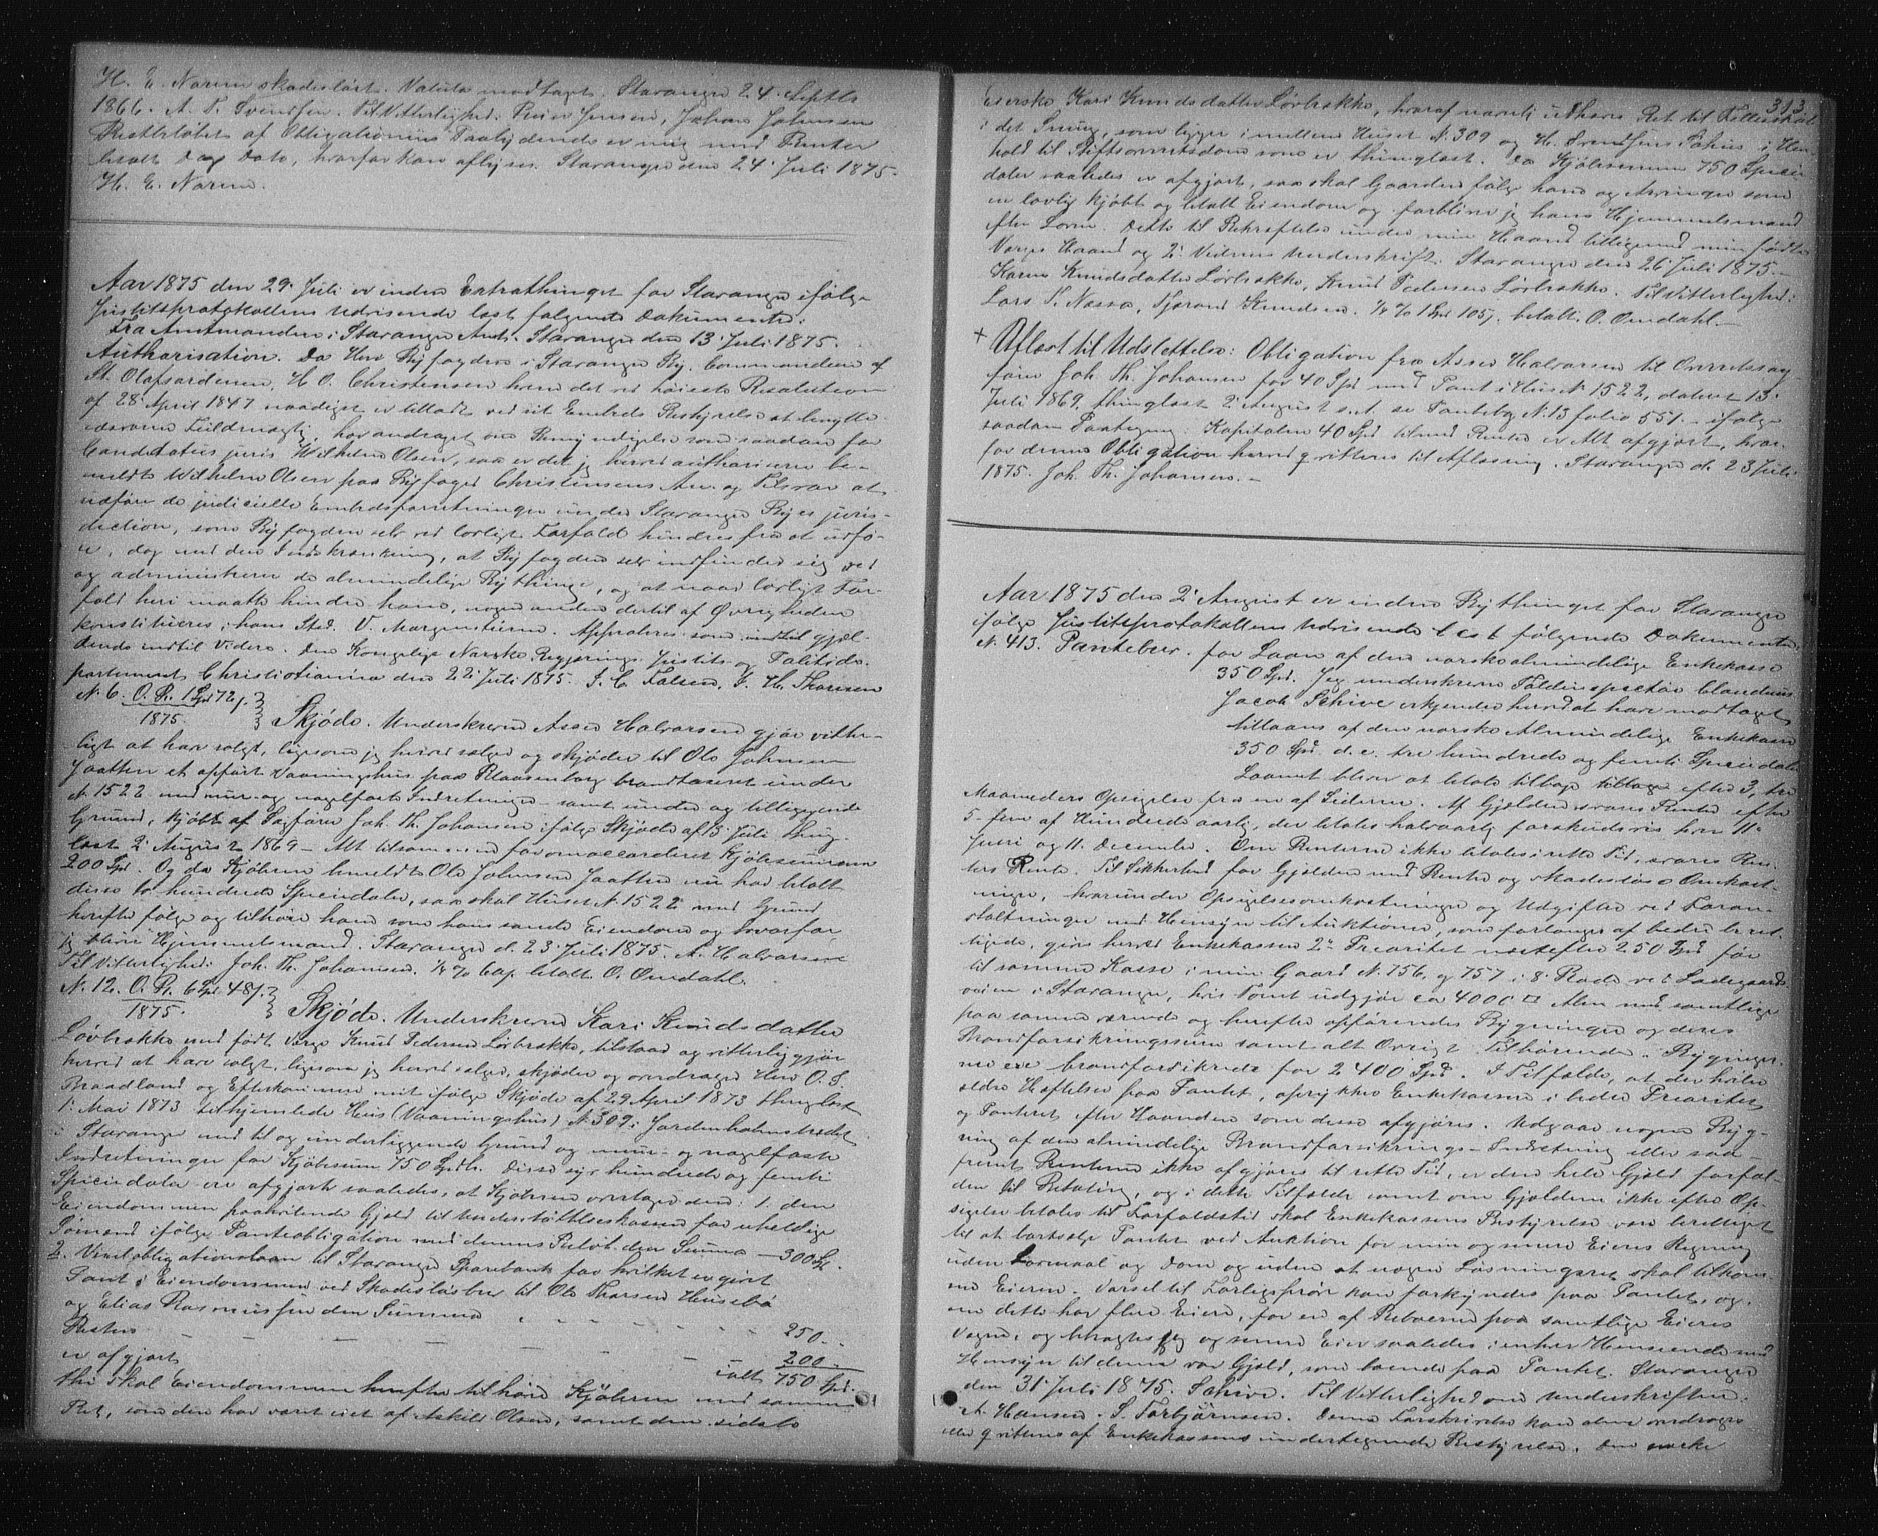 H. E. Narum skadesløst. Valuta modtaget. Stavanger 24. Septbr
1866. A. T. Svendsen. Til Vitterlighed: Peder Jensen, Johan Johnsen
Restbeløbet af Obligationens Paalydende er mig med Renter
betalt Dags Dato, hvorfor kan aflyses. Stavanger den 24' Juli 1875.
H. E. Narum.
Aar 1875 den 29' Juli er inden Extrathinget for Stavanger ifølge
Justitsprotokollens Udvisende læst følgende Dokumenter:
Fra Amtmanden i Stavanger Amt. Stavanger den 13' Juli 1875.
Authorisation. Da Herr Byfogden i Stavanger By, Commandeur af
St. Olafsordenen, H. O. Christensen hvem det ved høieste Resolution
af 28' April 1847 naadigst er tilladt ved sit Embeds Bestyrelse at benytte
edsvoren Fuldmægtig, har andraget om Bemyndigelse som saadan for
Candidatus juris Wilhelm Olsen, saa er det jeg herved authoriserer be-
meldte Wilhelm Olsen paa Byfoged Christensens An- og Tilsvar at
udføre de judicielle Embedsforretninger under Stavanger Byes juris-
diction, som Byfogden selv ved lovligt Forfald hindres fra at udfø-
re, dog med den Indskrænkning, at Byfogden selv indfinder sig ved
og administrerer de almindelige Bythinge, og at naar lovligt For-
fald heri maatte hindre ham, nogen anden dertil af Øvrigheden
konstitueres i hans Sted. V. Morgenstierne. Approberes som indtil gjæl-
dende indtil Videre. Den Kongelige Norske Regjerings Justits- og Politide-
partement Christiania den 22' Juli 1875. J. C. Falsen, G. H. Thoresen
N. 6. O. R. 1 Spd 72 s.
1875. Skjøde. Underskrevne Asser Halvorsen gjør vitter-
ligt at have solgt, ligesom jeg herved sælger og skjøder til Ole Johnsen
Jaatten et opført Vaaningshus paa Blaasenborg brandtaxeret under
N. 1522 med mur- og nagelfaste Indretninger samt under og tilliggende
Grund, kjøbt af Sagfører Joh. Th. Johansen ifølge Skjøde af 13' Juli thing-
læst 2' August 1869 – Alt tilsammen for omaccorderet Kjøbesum
200 Spd. Og da Kjøberen bemeldte Ole Johnsen Jaatten nu har betalt
disse to hundrede Speciedaler, saa skal Huset N. 1522 med Grund
herefter følge og tilhøre ham som hans sande Eiendom og hvorfor
jeg bliver Hjemmelsmand. Stavanger d. 23' Juli 1875. A. Halvorsen
Til Vitterlighed: Joh. Th. Johansen. ½ % 60 s. betalt O. Omdahl.
N. 12. O. R. 6 Spd. 48 s.
1875. Skjøde. Underskrevne Kari Knudsdatter
Løvbrekke med født Verge Knud Pedersen Løvbrekke, tilstaar og vitterliggjør
herved at have solgt, ligesom jeg herved sælger, skjøder og overdrager Herr O. S.
Braadland og Efterkommere mit ifølge Skjøde af 29 April 1873 thinglæst
1' Mai 1873 tilhjemlede Hus (Vaaningshus) N. 309 i Jordenholmstrædet
i Stavanger med til og underliggende Grund og muur- og nagelfaste
Indretninger for Kjøbesum 750 Spdlr. Disse syv hundrede og femti
Speciedaler ere afgjort saaledes, at Kjøberen overtager den: 1. den
Eiendommen paahvilende Gjeld til Understøttelseskassen for uheldige
Sømænd ifølge Panteobligation med dennes Restbl. den Summa – 300 Sp.
2. Vexelobligationslaan til Stavanger Sparebank for hvilket er givet
Pant i Eiendommen ved Skadesløsbrev til Ole Thorsen Husebø
og Elias Rasmussen den Summa 250. –
Resten 200 –
er afgjort ialt 750 Spd.
thi skal Eiendommen herefter tilhøre Kjøberen med samme
Ret, som den har været eiet af Askild Olsen, samt den sidste
313
Eierske Kari Knudsdatter Løvbrekke, hvoraf navnlig udhæves Ret til Fællesskab
i det Smug, som ligger imellem Huset N. 309 og H. Svendsens Pakhus i Hen-
hold til Stiftsoverretsdom som er thinglæst. Da Kjøbesummen 750 Specie-
daler saaledes er afgjort, saa skal Gaarden følge ham og Arvinger som
en lovlig kjøbt og betalt Eiendom og forbliver jeg hans Hjemmelsmand
efter Loven. Dette til Bekræftelse under min Haand tilligemed min fødte
Verges Haand og 2' Vidners Underskrift. Stavanger den 26' Juli 1875.
Karen Knudsdatter Løvbrekke, Knud Pedersen Løvbrekke. Til Vitterlighed:
Lars T. Næssa, Tjerand Knudsen. ½ % 1 Spd 105 s. betalt. O. Omdahl. –
+ Aflæst til Udslettelse: Obligation fra Asser Halvorsen til Overretssag-
fører Joh. Th. Johansen for 40 Spd med Pant i Hus N. 1522, dateret 13'
Juli 1869, thinglæst 2' August s. A. se Pantebog N. 13 folio 551. – ifølge
saadan Paategning: Kapitalen 40 Spd tilmed Renter er Alt afgjort, hvor-
for denne Obligation herved qvitteres til Aflæsning. Stavanger d. 23 Juli
1875. Joh. Th. Johansen. –
Aar 1875 den 2' August er inden Bythinget for Stavanger
ifølge Justitsprotokollens Udvisende læst følgende Dokumenter,
N. 413. Pantebrev. for Laan af den norske almindelige Enkekasse
350 Spd. Jeg underskrevne Toldinspectør Claudius
Jacob Schive erkjender herved at have modtaget
tillaans af den norske Almindelige Enkekasse
350 Spd. d. e. tre hundrede og femti Speciedaler.
Laanet bliver at betale tilbage tilbage efter 3, tre
Maaneders Opsigelse fra en af Siderne. Af Gjælden svares Renter efter
5 – fem af Hundrede aarlig, der betales halvaarlig forskudsvis hver 11'
Juni og 11. December. Om Renterne ikke betales i rette Tid, svares Ren-
ters Rente. Til Sikkerhed for Gjælden med Renter og skadesløse Omkost-
ninger, herunder Opsigelsesomkostninger og Udgifter ved Foran-
staltninger med Hensyn til Auktioner, som forlanges af bedre beret-
tigede, gives herved Enkekassen 2' Prioritet næstefter 250 Spd før
til samme Kasse i min Gaard N. 756. og 757 i 8' Rode ved Ladegaards-
veien i Stavanger, hvis Tomt udgjør ca 4000 □ Alen med samtlige
paa samme værende og herefter opførendes Bygninger og deres
Brandforsikringssum samt alt Øvrigt Tilhørende. Bygninger-
ne ere brandforsikrede for 2400 Spd. I Tilfælde, at der hviler
ældre Heftelser paa Pantet, oprykker Enkekassen i ledig Prioritet
og Panteret efter Haanden som disse afgjøres. Udgaar nogen Byg-
ning af den almindelige Brandforsikrings-Indretning eller saa-
fremt Renterne ikke afgjøres til rette Tid, er den hele Gjæld forfal-
den til Betaling, og i dette Tilfælde samt om Gjælden ikke efter Op-
sigelse betales til Forfaldstid skal Enkekassens Bestyrelse være berettiget
til at bortsælge Pantet ved Auktion for min og senere Eieres Regning
uden Lovmaal og Dom og uden at nogen Løsningsret skal tilkom-
me Eieren. Varsel til Forligsprøve kan forkyndes paa Pantet, og,
om dette har flere Eiere, for en af Beboerne paa samtlige Eieres
Vegne, og betragtes jeg og senere Eier saaledes i enhver Henseende med
Hensyn til denne vor Gjæld, som boende paa Pantet. Stavanger
den 31' Juli 1875. Schive. Til Vitterlighed om Underskriften:
A. Hansen. S. Torbjørnsen. Denne Forskrivelse kan alene overdrages
eller qvitteres af Enkekassens undertegnede Bestyrelse. Den norske